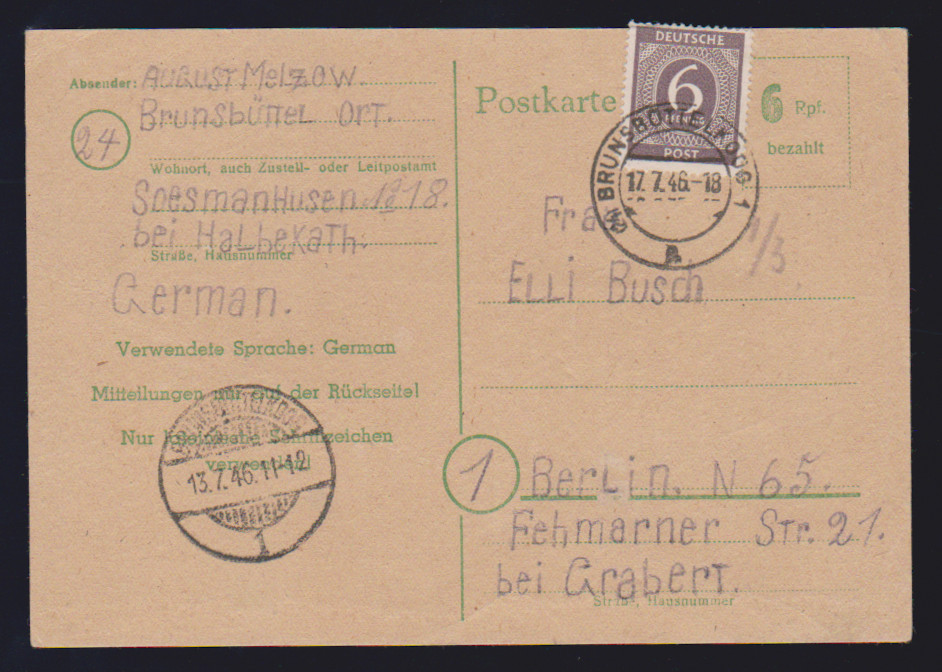 Absender: August Melzow.
Brunsbüttel Ort.
24
Wohnort, auch Zustell- oder Leitpostamt
Soesmanhusen 18.
bei Halbekath.
Straße, Hausnummer
German.
Verwendete Sprache: German
Mitteilungen nur auf der Rückseite!
Nur lateinische Schriftzeichen
verwenden!
13.7.46.11-12
1
Postkarte
DEUTSCHE
6
PFENNIG
POST
6 Rpf.
bezahlt
BRUNSBÜTTELKOOG 1
17.7.46.-18
a
Elli Busch
1 Berlin. N 65.
Fehmarner Str. 21.
bei Grabert.
Straße, Hausnummer